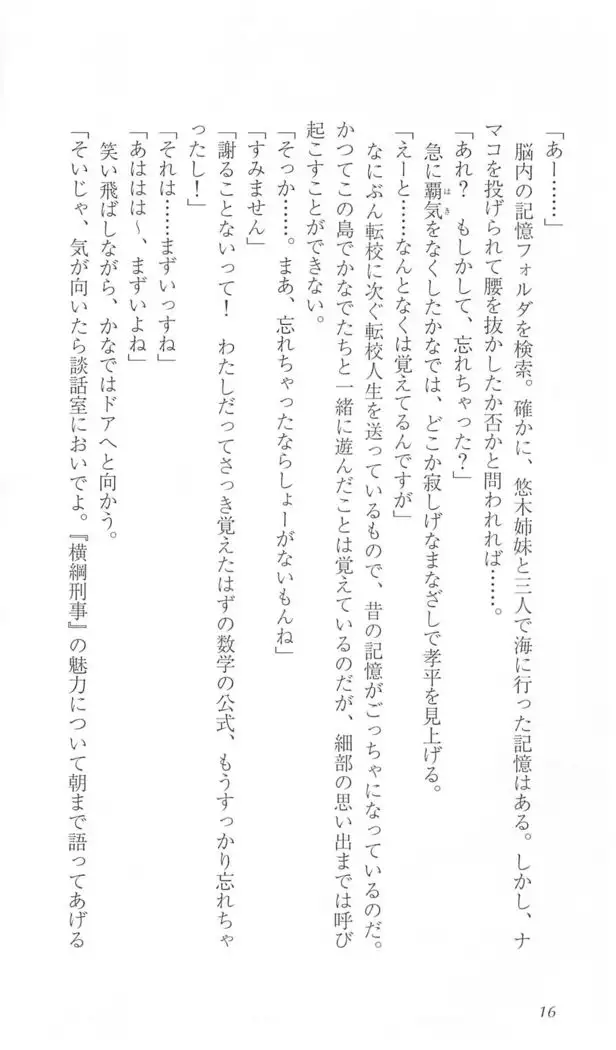 「あー……」
　脳内の記憶フォルダを検索。確かに、悠木姉妹と三人で海に行った記憶はある。しかし、ナ
マコを投げられて腰を抜かしたか否かと問われれば……。
「あれ？　もしかして、忘れちゃった？」
　急に覇気をなくしたかなでは、どこか寂しげなまなざしで孝平を見上げる。
はき
「えーと……なんとなくは覚えてるんですが」
　なにぶん転校に次ぐ転校人生を送っているもので、昔の記憶がごっちゃになっているのだ。
かつてこの島でかなでたちと一緒に遊んだことは覚えているのだが、細部の思い出までは呼び
起こすことができない。
「そっか……。まあ、忘れちゃったならしょーがないもんね」
「すみません」
「謝ることないって！　わたしだってさっき覚えたはずの数学の公式、もうすっかり忘れちゃ
ったし！」
「それは……まずいっすね」
「あははは〜、まずいよね」
　笑い飛ばしながら、かなではドアへと向かう。
「そいじゃ、気が向いたら談話室においでよ。『横綱刑事』の魅力について朝まで語ってあげる
16